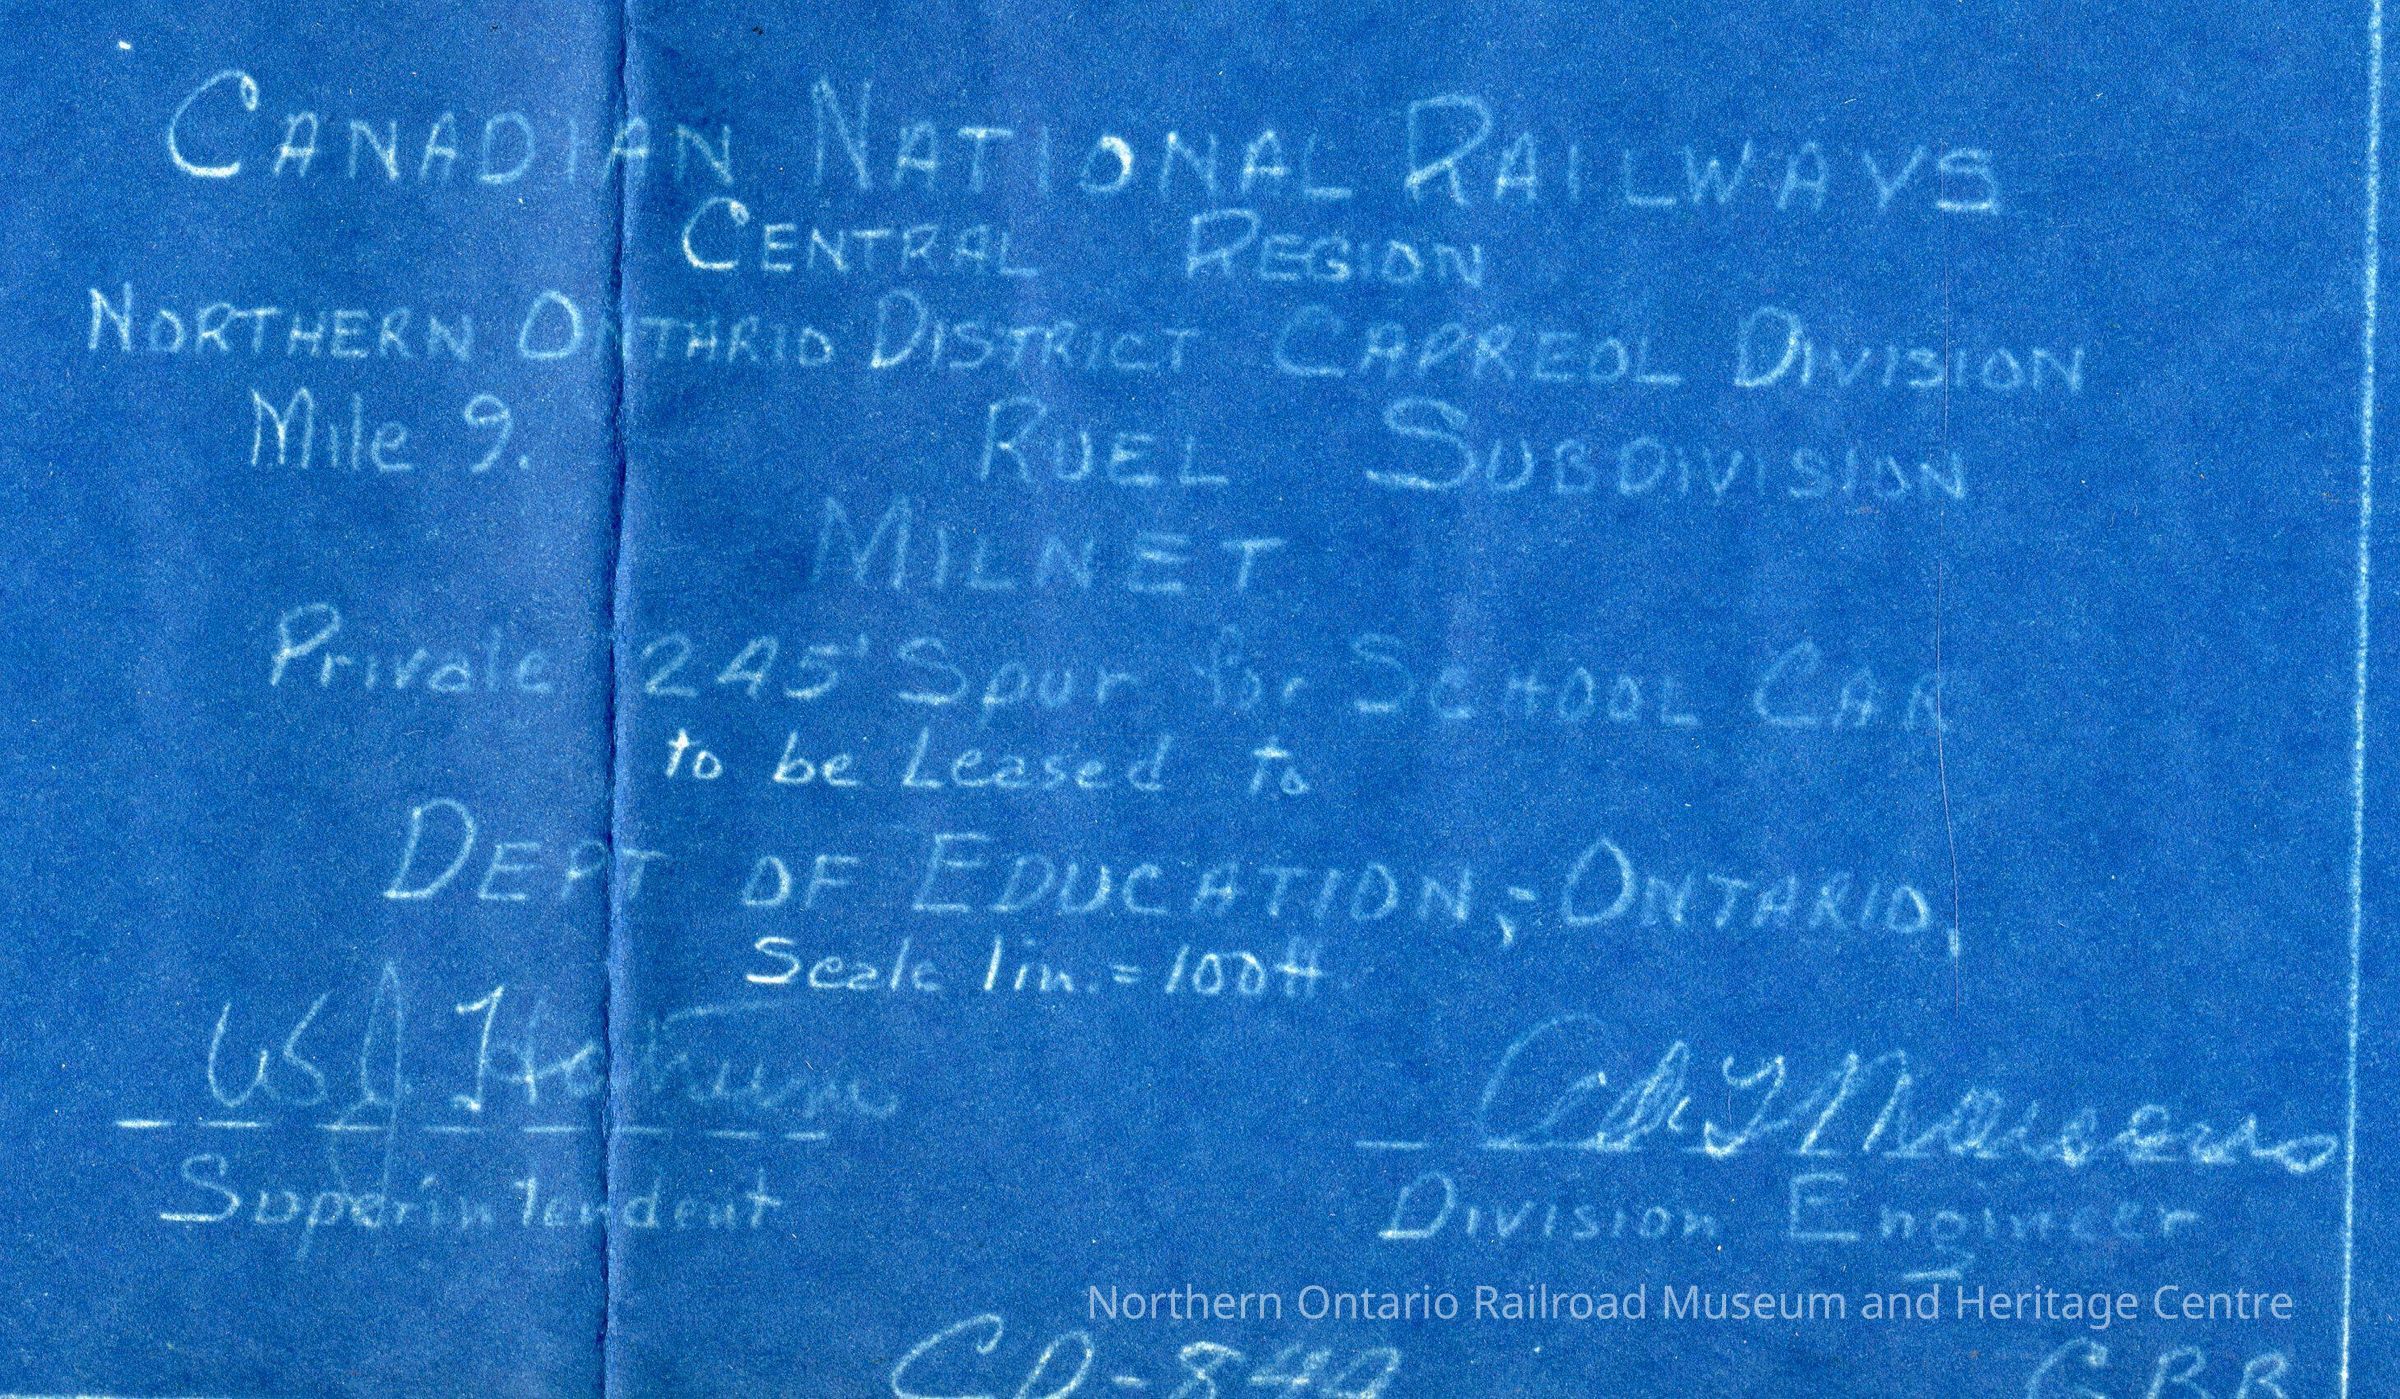 CANADIAN NATIONAL RAILWAYS
CENTRAL REGION
NORTHERN ONTARIO DISTRICT CAPREOL DIVISION
Mile 9. RUEL SUBDIVISION
MILNET
Private 245' Spur for SCHOOL CAR
to be Leased to
DEPT OF EDUCATION;- ONTARIO,
Scale 1in. = 100ft.
Superintendent
Division Engineer
Northern Ontario Railroad Museum and Heritage Centre